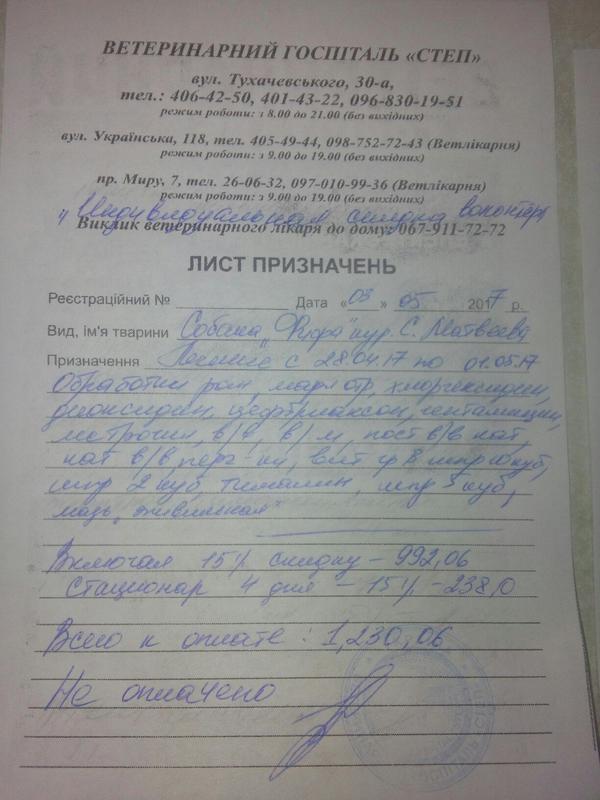 ВЕТЕРИНАРНИЙ ГОСПІТАЛЬ «СТЕП»
вул. Тухачевського, 30-а,
тел.: 406-42-50, 401-43-22, 096-830-19-51
режим роботи: з 8.00 до 21.00 (без вихідних)
вул. Українська, 118, тел. 405-49-44, 098-752-72-43 (Ветлікарня)
режим роботи: з 9.00 до 19.00 (без вихідних)
пр. Миру, 7, тел. 26-06-32, 097-010-99-36 (Ветлікарня)
режим роботи: з 9.00 до 19.00 (без вихідних)
Индивидуальная скидка волонтера
Виклик ветеринарного лікаря до дому: 067-911-72-72
ЛИСТ ПРИЗНАЧЕНЬ
Реєстраційний № Дата «03» 05 2017 р.
Вид, ім'я тварини Собака кур. С. Матвеева
Призначення Лечение с 28.04.17 по 01.05.17
Обработки ран, хлоргексидин,
диоксидин, цефтриаксон, гентамицин,
в/в, в/м, пост в/в кат,
кат в/в, вит гр В шпр 10 куб,
шпр 2 куб, шпр 5 куб,
мазь
Включая 15% скидку - 992,06
Стационар 4 дня - 15% - 238,0
Всего к оплате: 1,230,06
Не оплачено